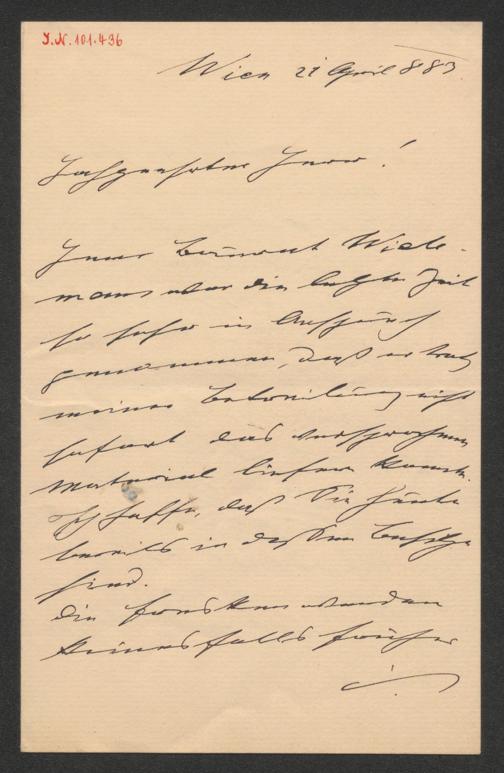 J.N. 101.436
Wien 21 April 883
Hochgeehrter Herr!
Herr Baurat Wiele-
mans war die letzte Zeit
so sehr in Anspruch
genommen, daß er trotz
meiner Betreibung nicht
sofort das versprochene
Material liefern konnte.
Ich hoffe, daß Sie heute
bereits in dessen Besitze
sind.
Die Fresken werden
keinesfalls früher